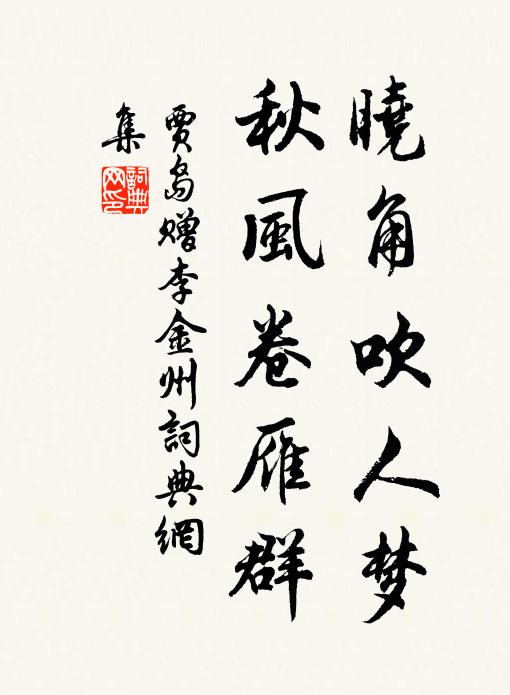 曉角吹人梦
秋風卷雁群
賈島赠李金州詞典網
集
詞典网印